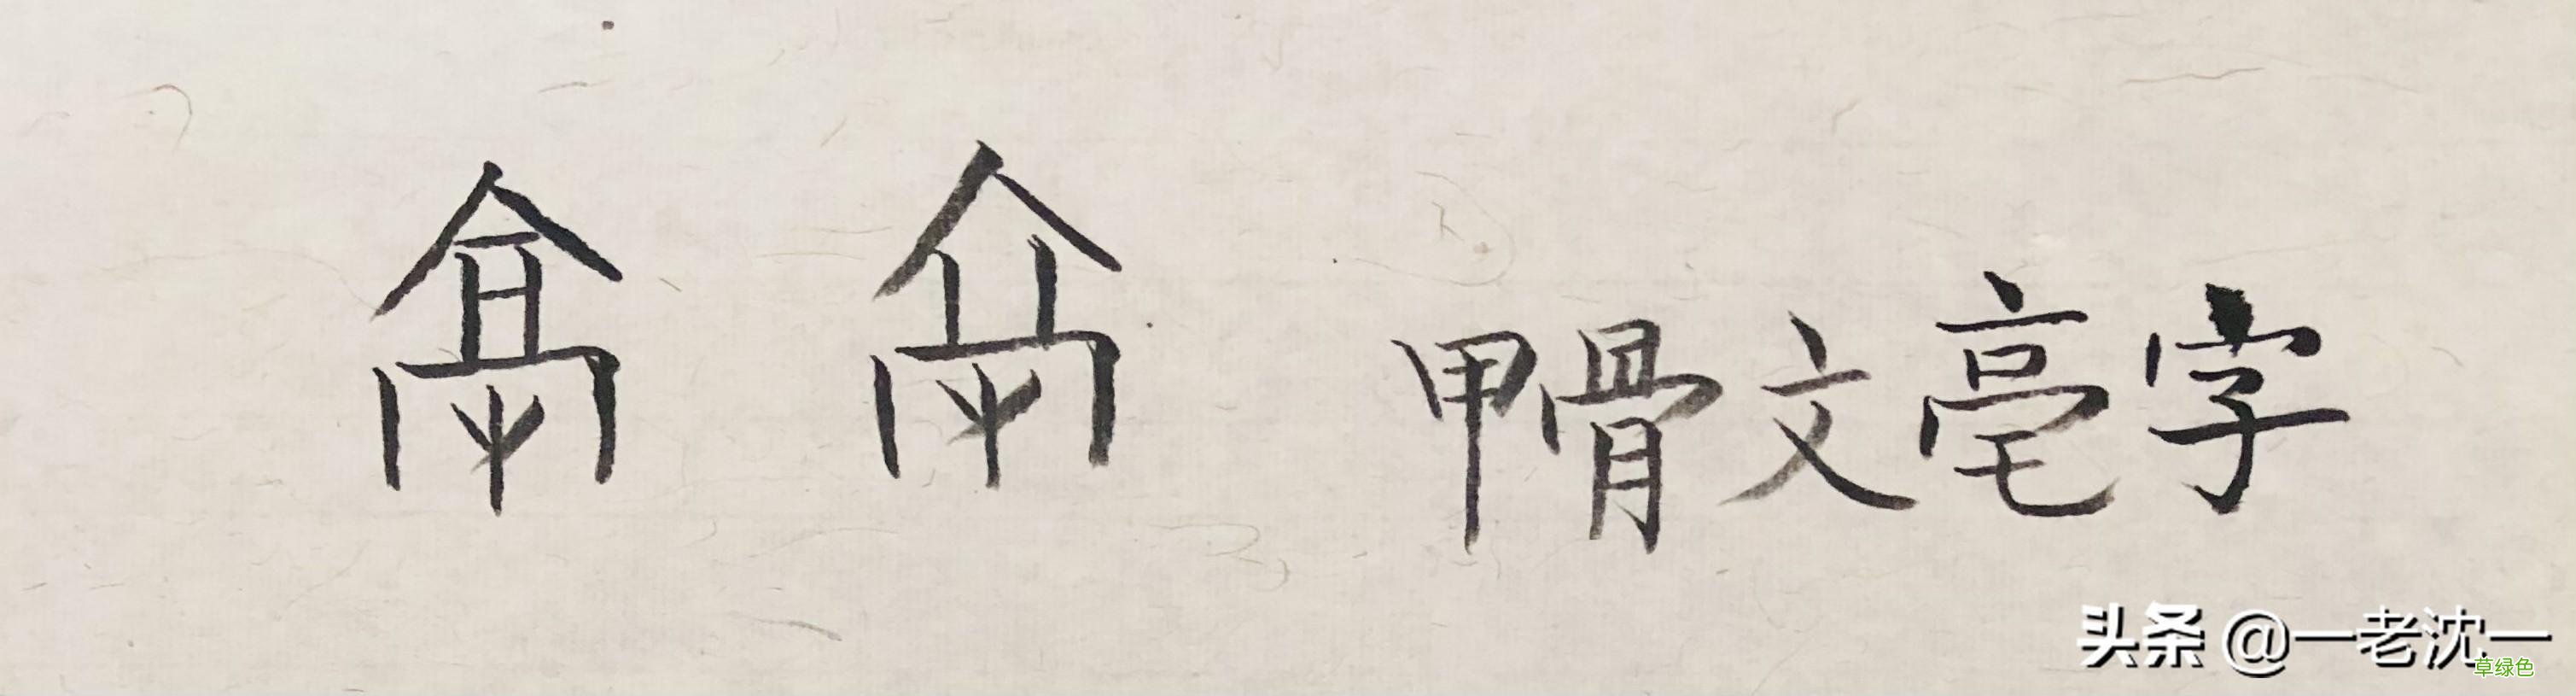 甲骨文亳字
头条 @一老沈一
草绿色